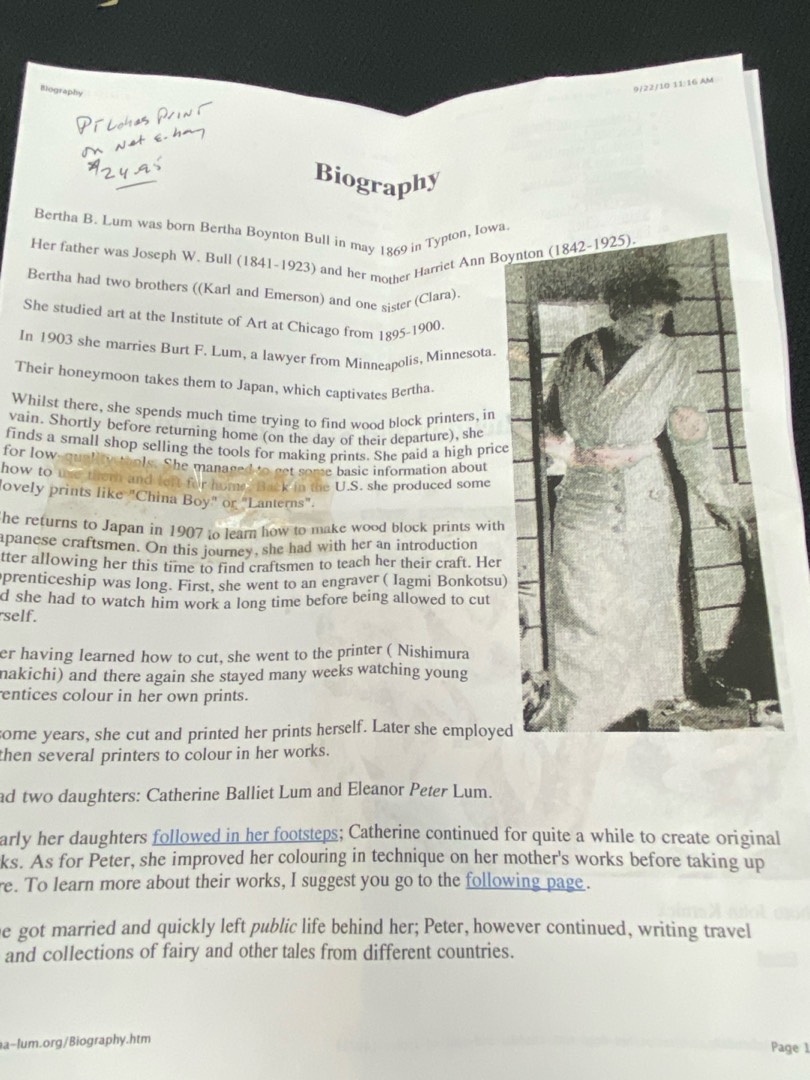 Biography
9/22/10 11:16 AM
Print
on Net
$24.95
Biography
Bertha B. Lum was born Bertha Boynton Bull in may 1869 in Typton, Iowa.
Her father was Joseph W. Bull (1841-1923) and her mother Harriet Ann Boynton (1842-1925).
Bertha had two brothers ((Karl and Emerson) and one sister (Clara).
She studied art at the Institute of Art at Chicago from 1895-1900.
In 1903 she marries Burt F. Lum, a lawyer from Minneapolis, Minnesota.
Their honeymoon takes them to Japan, which captivates Bertha.
Whilst there, she spends much time trying to find wood block printers, in
vain. Shortly before returning home (on the day of their departure), she
finds a small shop selling the tools for making prints. She paid a high price
for low quality tools. She managed to get some basic information about
how to use them and left for home. Back in the U.S. she produced some
lovely prints like "China Boy" or "Lanterns".
he returns to Japan in 1907 to learn how to make wood block prints with
apanese craftsmen. On this journey, she had with her an introduction
tter allowing her this time to find craftsmen to teach her their craft. Her
prenticeship was long. First, she went to an engraver ( Iagmi Bonkotsu)
d she had to watch him work a long time before being allowed to cut
rself.
er having learned how to cut, she went to the printer ( Nishimura
makichi) and there again she stayed many weeks watching young
rentices colour in her own prints.
ome years, she cut and printed her prints herself. Later she employed
then several printers to colour in her works.
ad two daughters: Catherine Balliet Lum and Eleanor Peter Lum.
arly her daughters followed in her footsteps; Catherine continued for quite a while to create original
ks. As for Peter, she improved her colouring in technique on her mother's works before taking up
re. To learn more about their works, I suggest you go to the following page.
e got married and quickly left public life behind her; Peter, however continued, writing travel
and collections of fairy and other tales from different countries.
a-lum.org/Biography.htm
Page 1